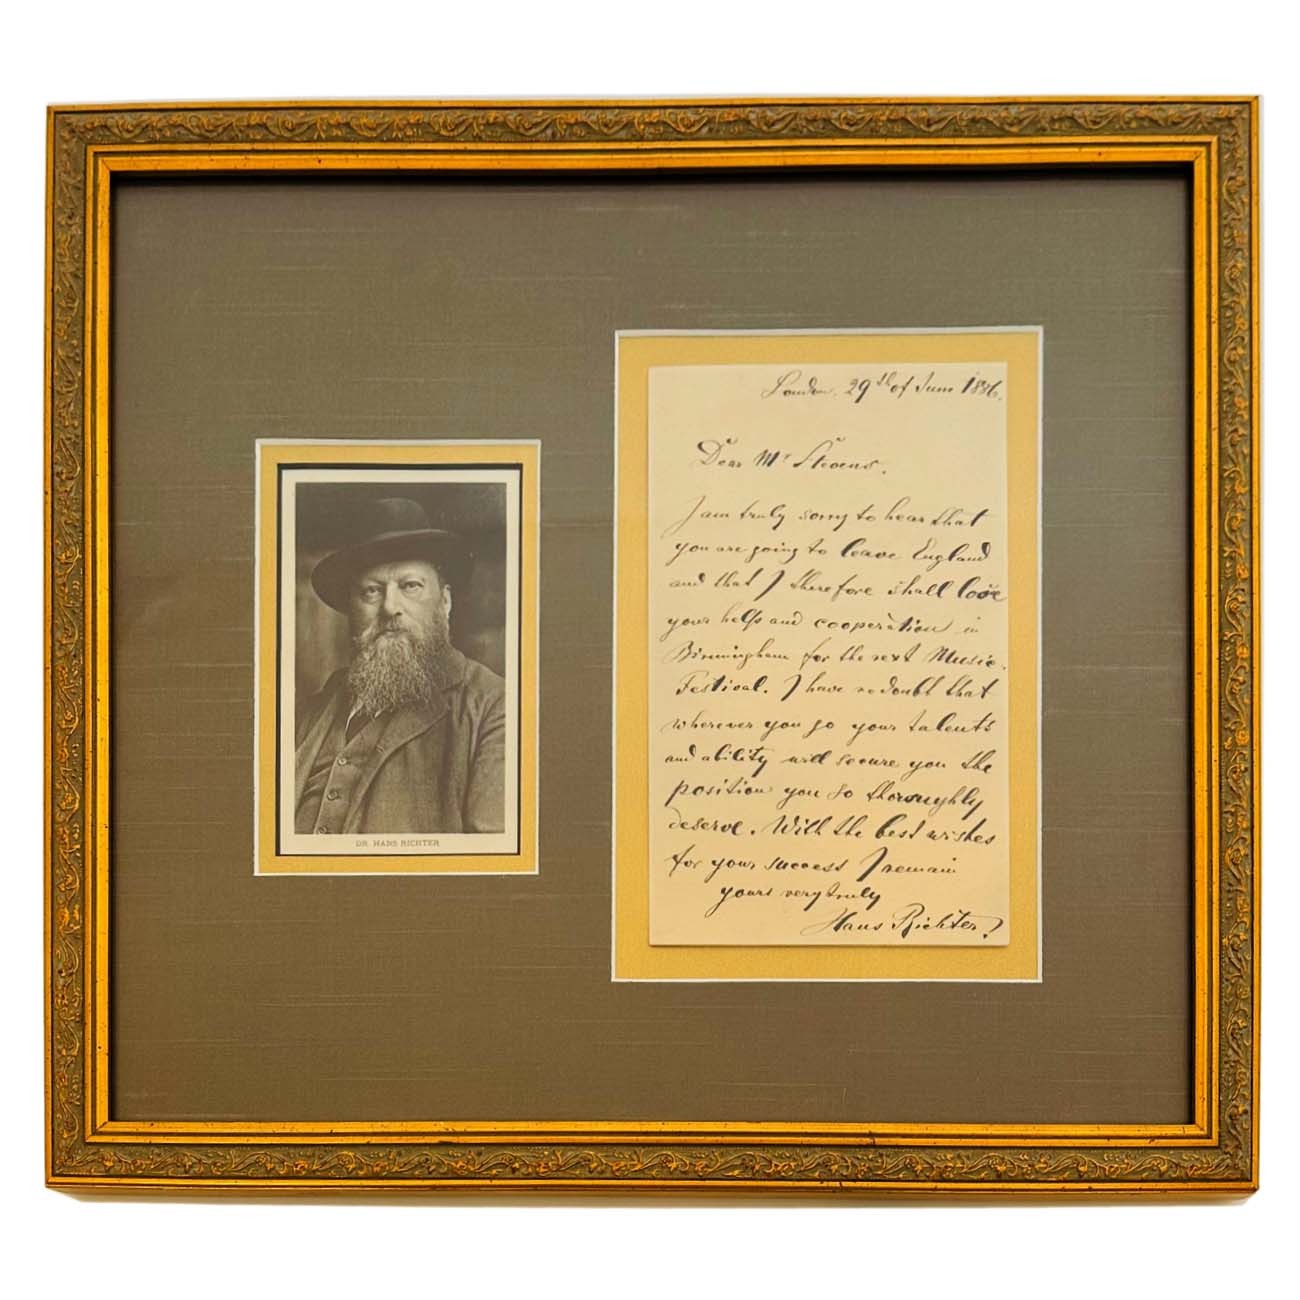 DR. HANS RICHTER
London, 29th of June 1886.
Dear Mr Stevens.
I am truly sorry to hear that
you are going to leave England
and that I therefore shall lose
your help and cooperation in
Birmingham for the next Music
Festival. I have no doubt that
wherever you go your talents
and ability will secure you the
position you so thoroughly
deserve. With the best wishes
for your success I remain
yours very truly
Hans Richter